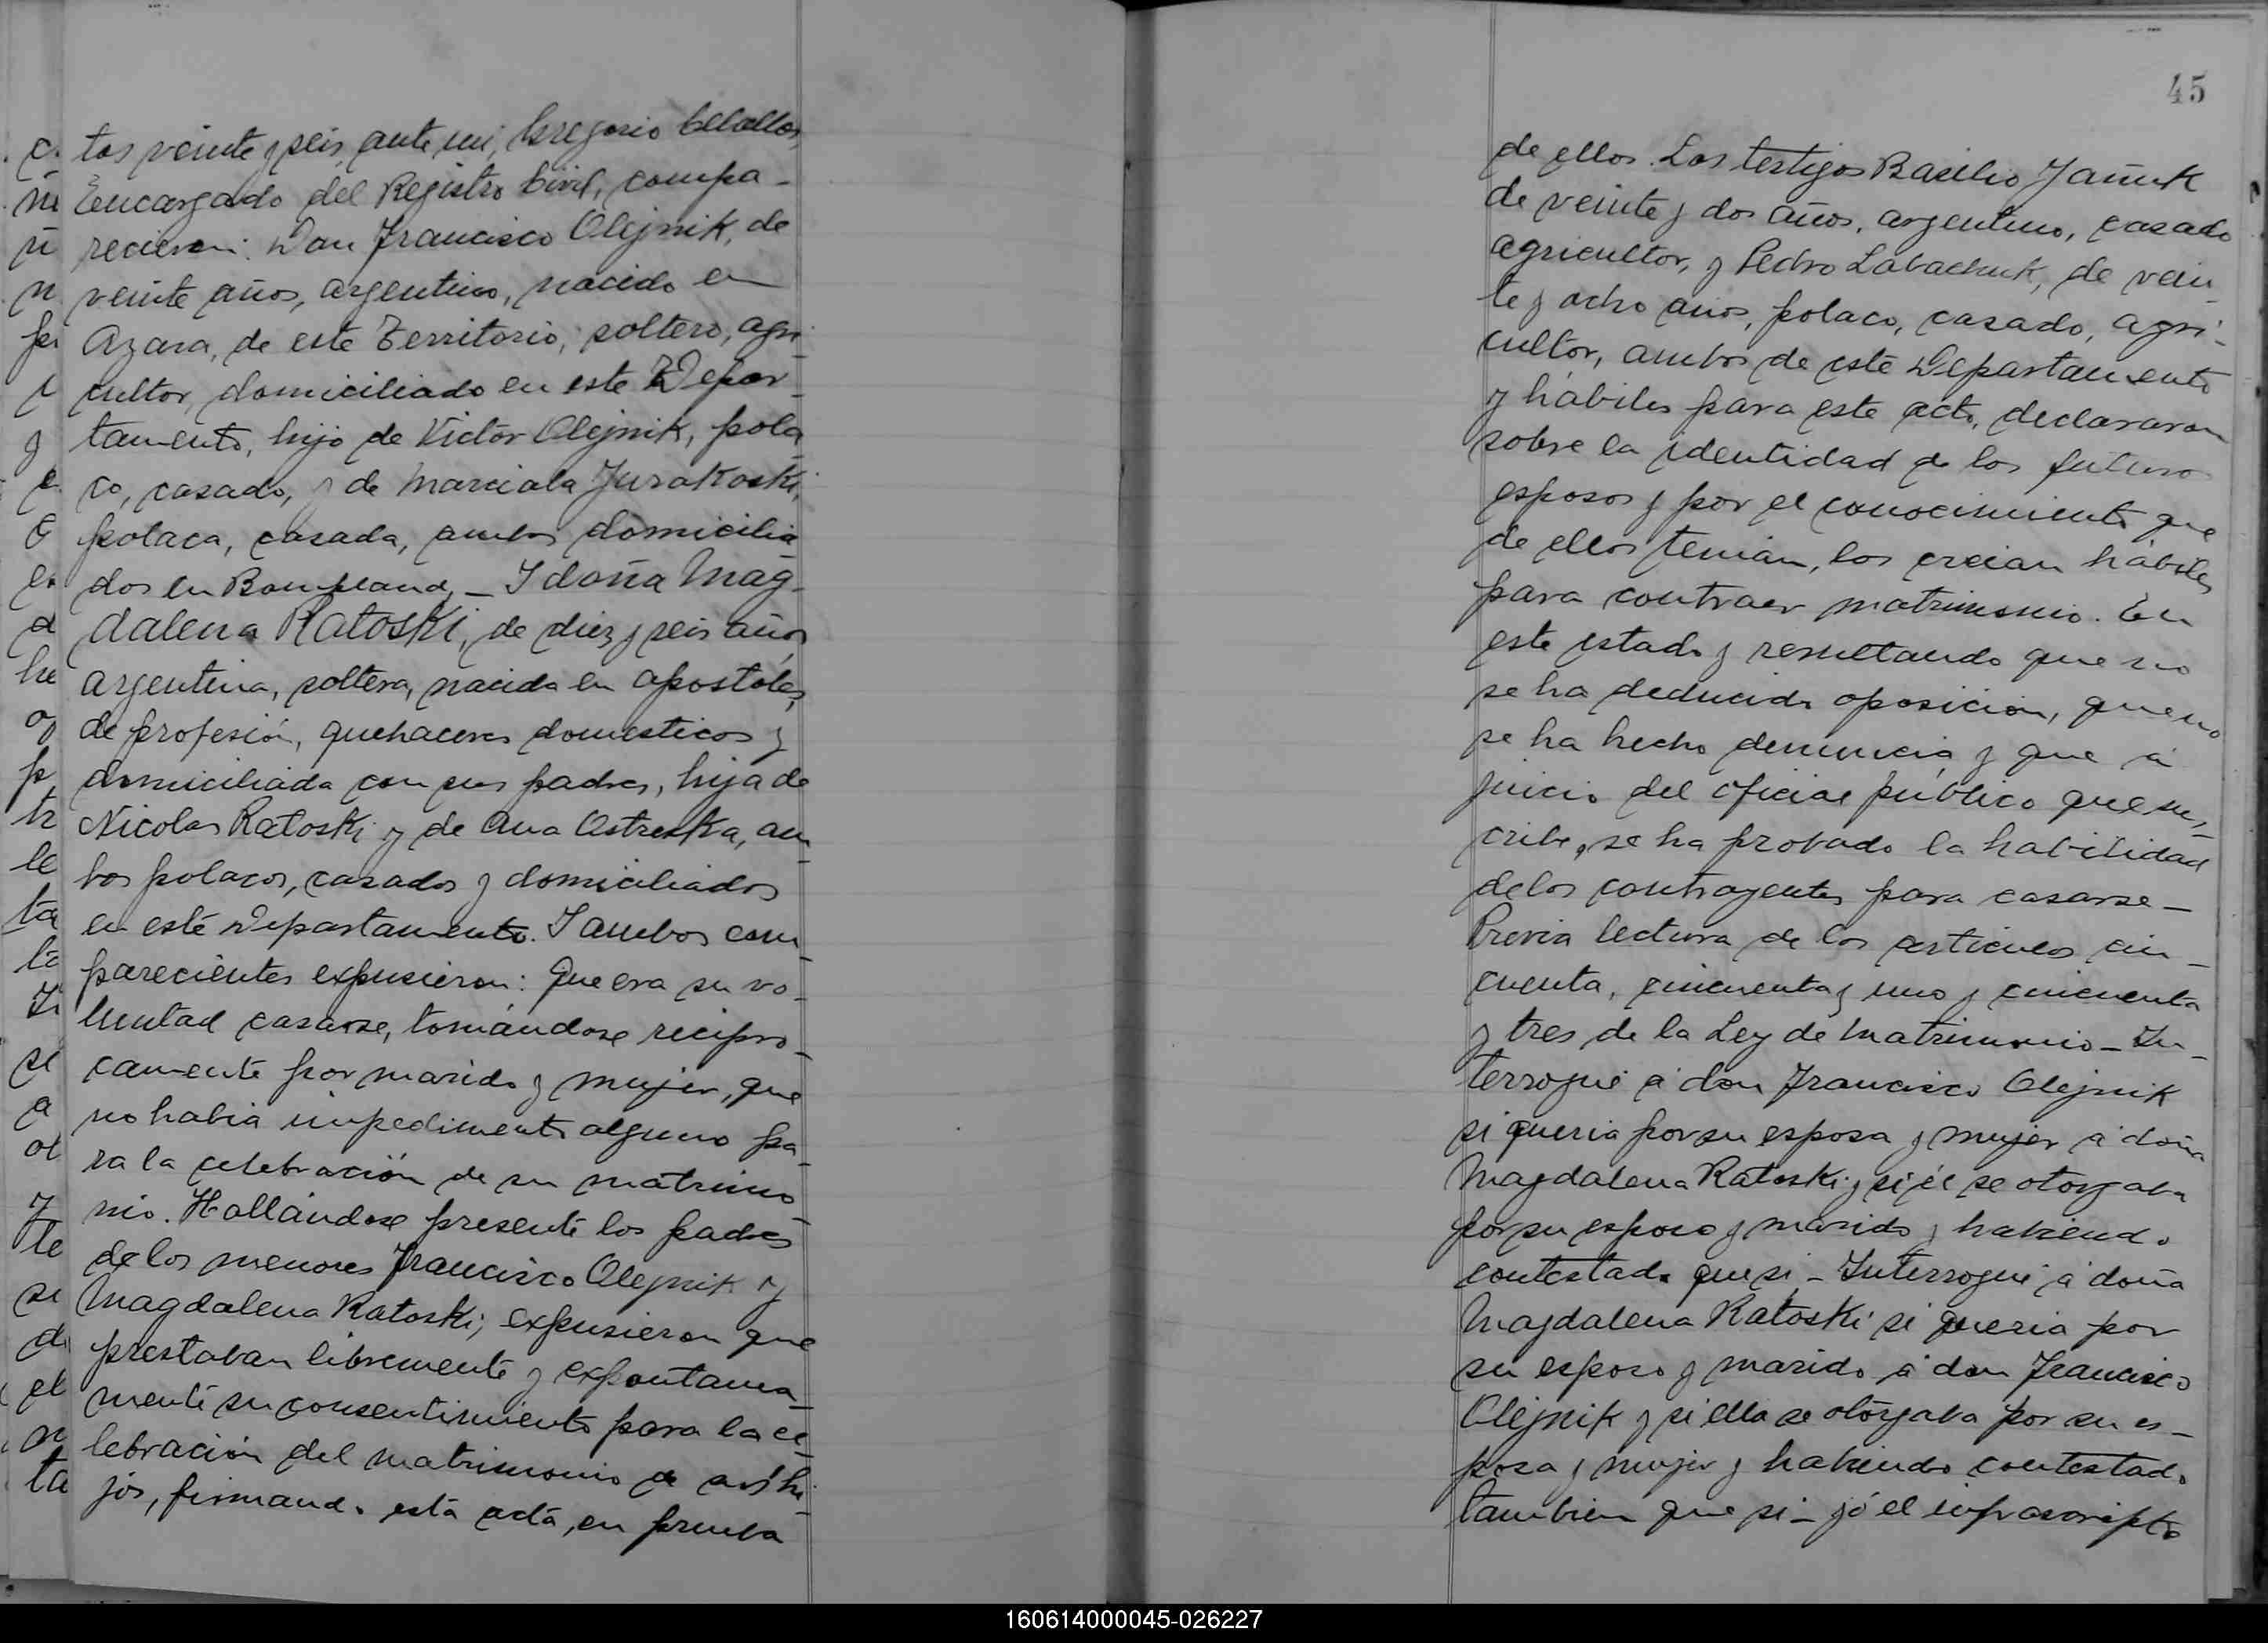 tos veinte y seis, ante mi, Gregorio Ceballos,
Encargado del Registro Civil, compa-
recieron: Don Francisco Olejnik, de
veinte años, argentino, nacido en
Azara, de este Territorio, soltero, agri-
cultor, domiciliado en este Depar-
tamento, hijo de Victor Olejnik, pola
co, casado, y de Marciala Jurakoski,
polaca, casada, ambos domicilia
dos en Bompland,_ Y doña Mag-
dalena Ratoski, de diez y seis años,
argentina, soltera, nacida en Apostoles,
de profesión, quehaceres domesticos y
domiciliada con sus padres, hija de
Nicolas Ratoski y de Ana Ostreska, am
bos polacos, casados y domiciliados
en este Departamento. Y ambos com
parecientes expusieron: Que era su vo-
luntad casarse, tomándose recipro-
camente por marido y mujer, que
no habia impedimento alguno pa-
ra la celebración de su matrimo
nio. Hallándose presente los padres
de los menores Francisco Olejnik y
Magdalena Ratoski; expusieron que
prestaban libremente y expontanea-
mente su consentimiento para la ce-
lebración del matrimonio de sus hi-
jos, firmando esta acta, en prueba
45
de ellos. Los testigos Basilio Jañuk
de veinte y dos años, argentino, casado
agricultor, y Pedro Labachuk, de vein
te y ocho años, polaco, casado, agri-
cultor, ambos de este Departamento
y hábiles para este acto, declararon
sobre la identidad de los futuro
esposos y por el conocimiento que
de ellos tenian, los creian hábiles
para contraer matrimonio. En
este estado y resultando que no
se ha deducido oposición, que no
se ha hecho denuncia y que á
juicio del oficial público que sus-
cribe, se ha probado la habilidad
de los contrayentes para casarse_
Previa lectura de los articulos cin-
cuenta, cincuenta y uno y cincuenta
y tres de la Ley de Matrimonio_ In-
terrogué á don Francisco Olejnik
si queria por su esposa y mujer á doña
Magdalena Ratoski y si él se otorgaba
por su esposo y marido y habiendo
contestado que si_ Interrogué á doña
Magdalena Ratoski si queria por
su esposo y marido á don Francisco
Olejnik y si ella se otorgaba por su es-
posa y mujer y habiendo contestado
tambien que si_ yó el infrascripto
160614000045-026227